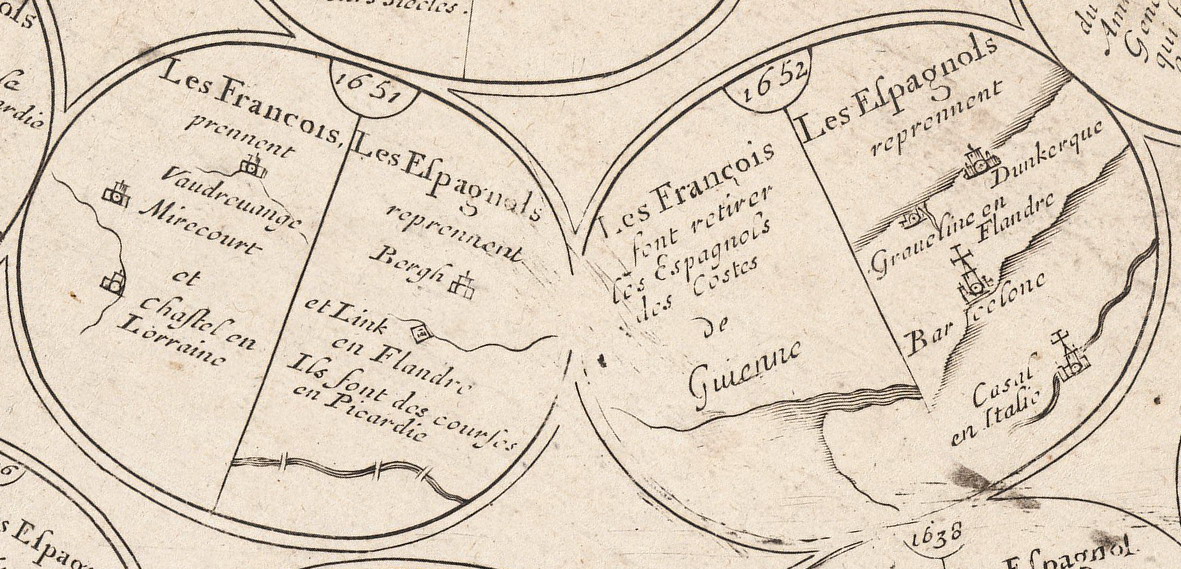 1651
Les Francois,
prennent
Vaudreuange
Mirecourt
et
Chastel en
Lorraine
Les Espagnols
reprennent
Bergh
et Link
en Flandre
Ils font des courses
en Picardie
1652
Les François
font retirer
les Espagnols
des Costes
de
Guienne
Les Espagnols
reprennent
Dunkerque
Graueline en
Flandre
Barscelone
Casal
en Italie
1638
Espagnol